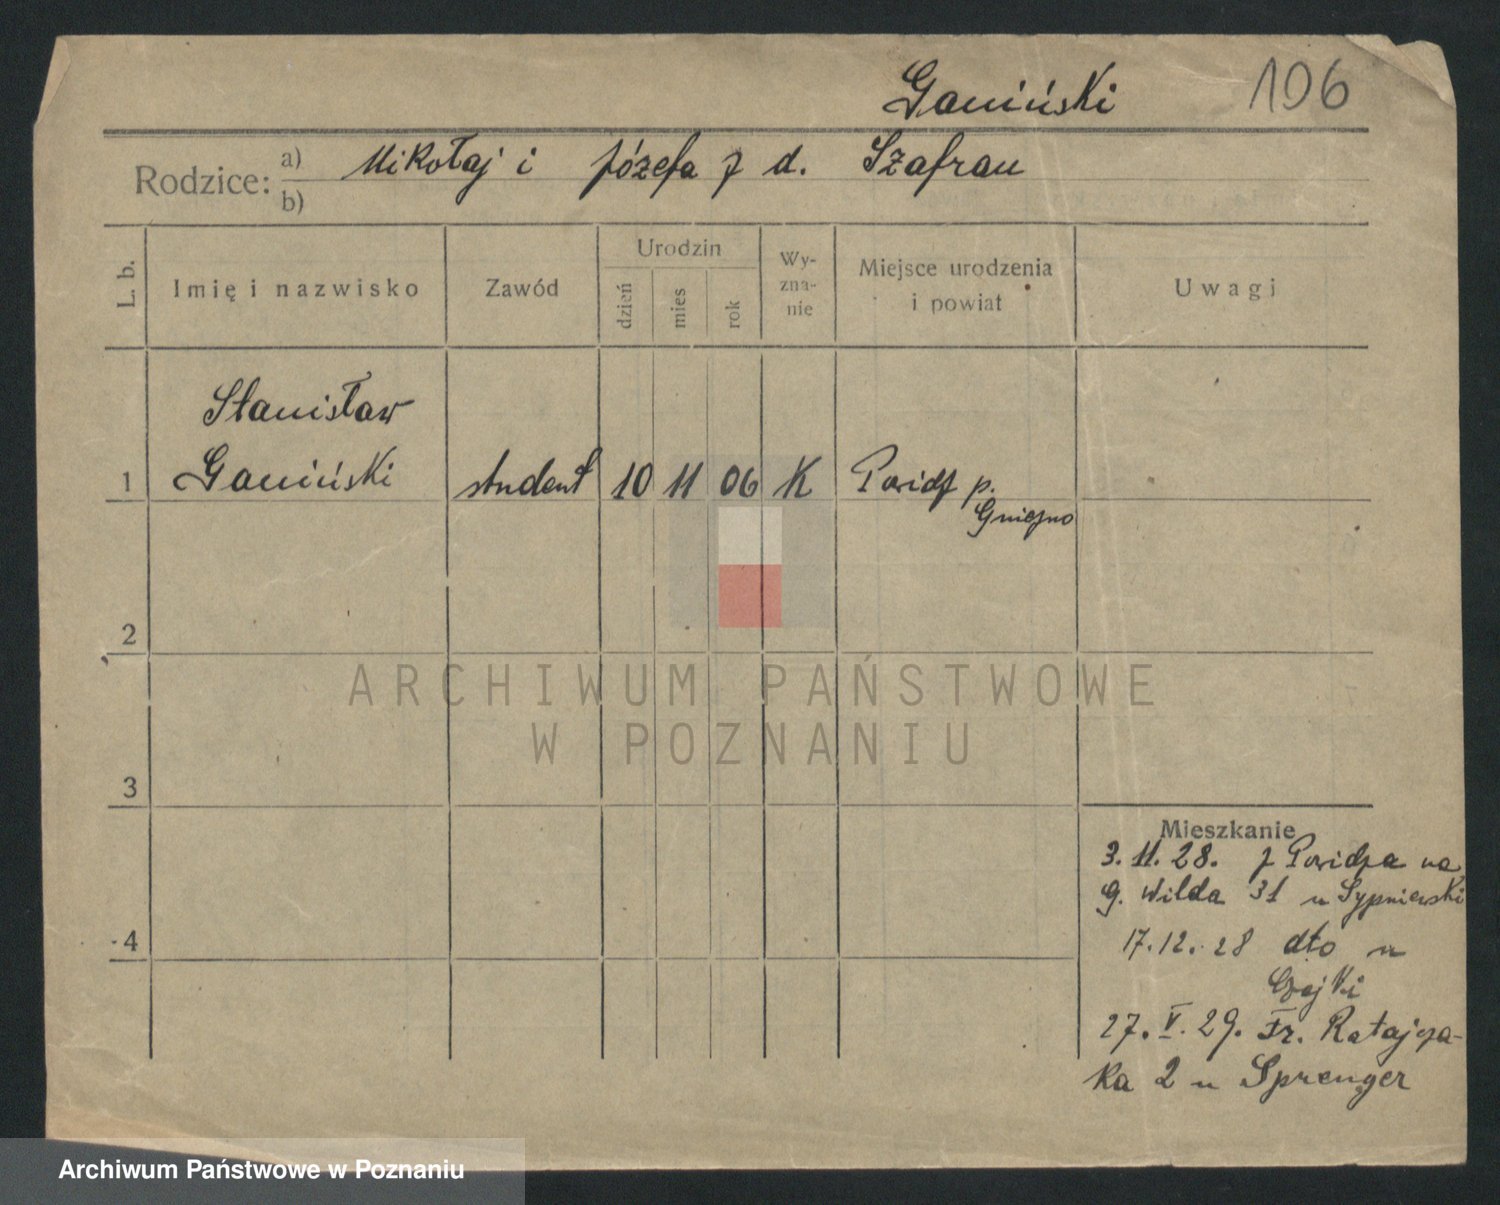 Gawiński 106
Rodzice: a) Mikołaj i Józefa z d. Szafran
b)
L. b.
Imię i nazwisko
Zawód
Urodzin
dzień
mies
rok
Wy-
zna-
nie
Miejsce urodzenia
i powiat
Uwagi
Stanisław
1 Gawiński student 10 11 06 K Powidz p.
Gniezno
2
3
4
Mieszkanie
3.11.28. z Powidza na
G. Wilda 31 u Sypniewski
17.12.28 dto u
Czajki
27.V.29. Fr. Ratajcza-
ka 2 u Sprenger
ARCHIWUM PAŃSTWOWE
W POZNANIU
Archiwum Państwowe w Poznaniu